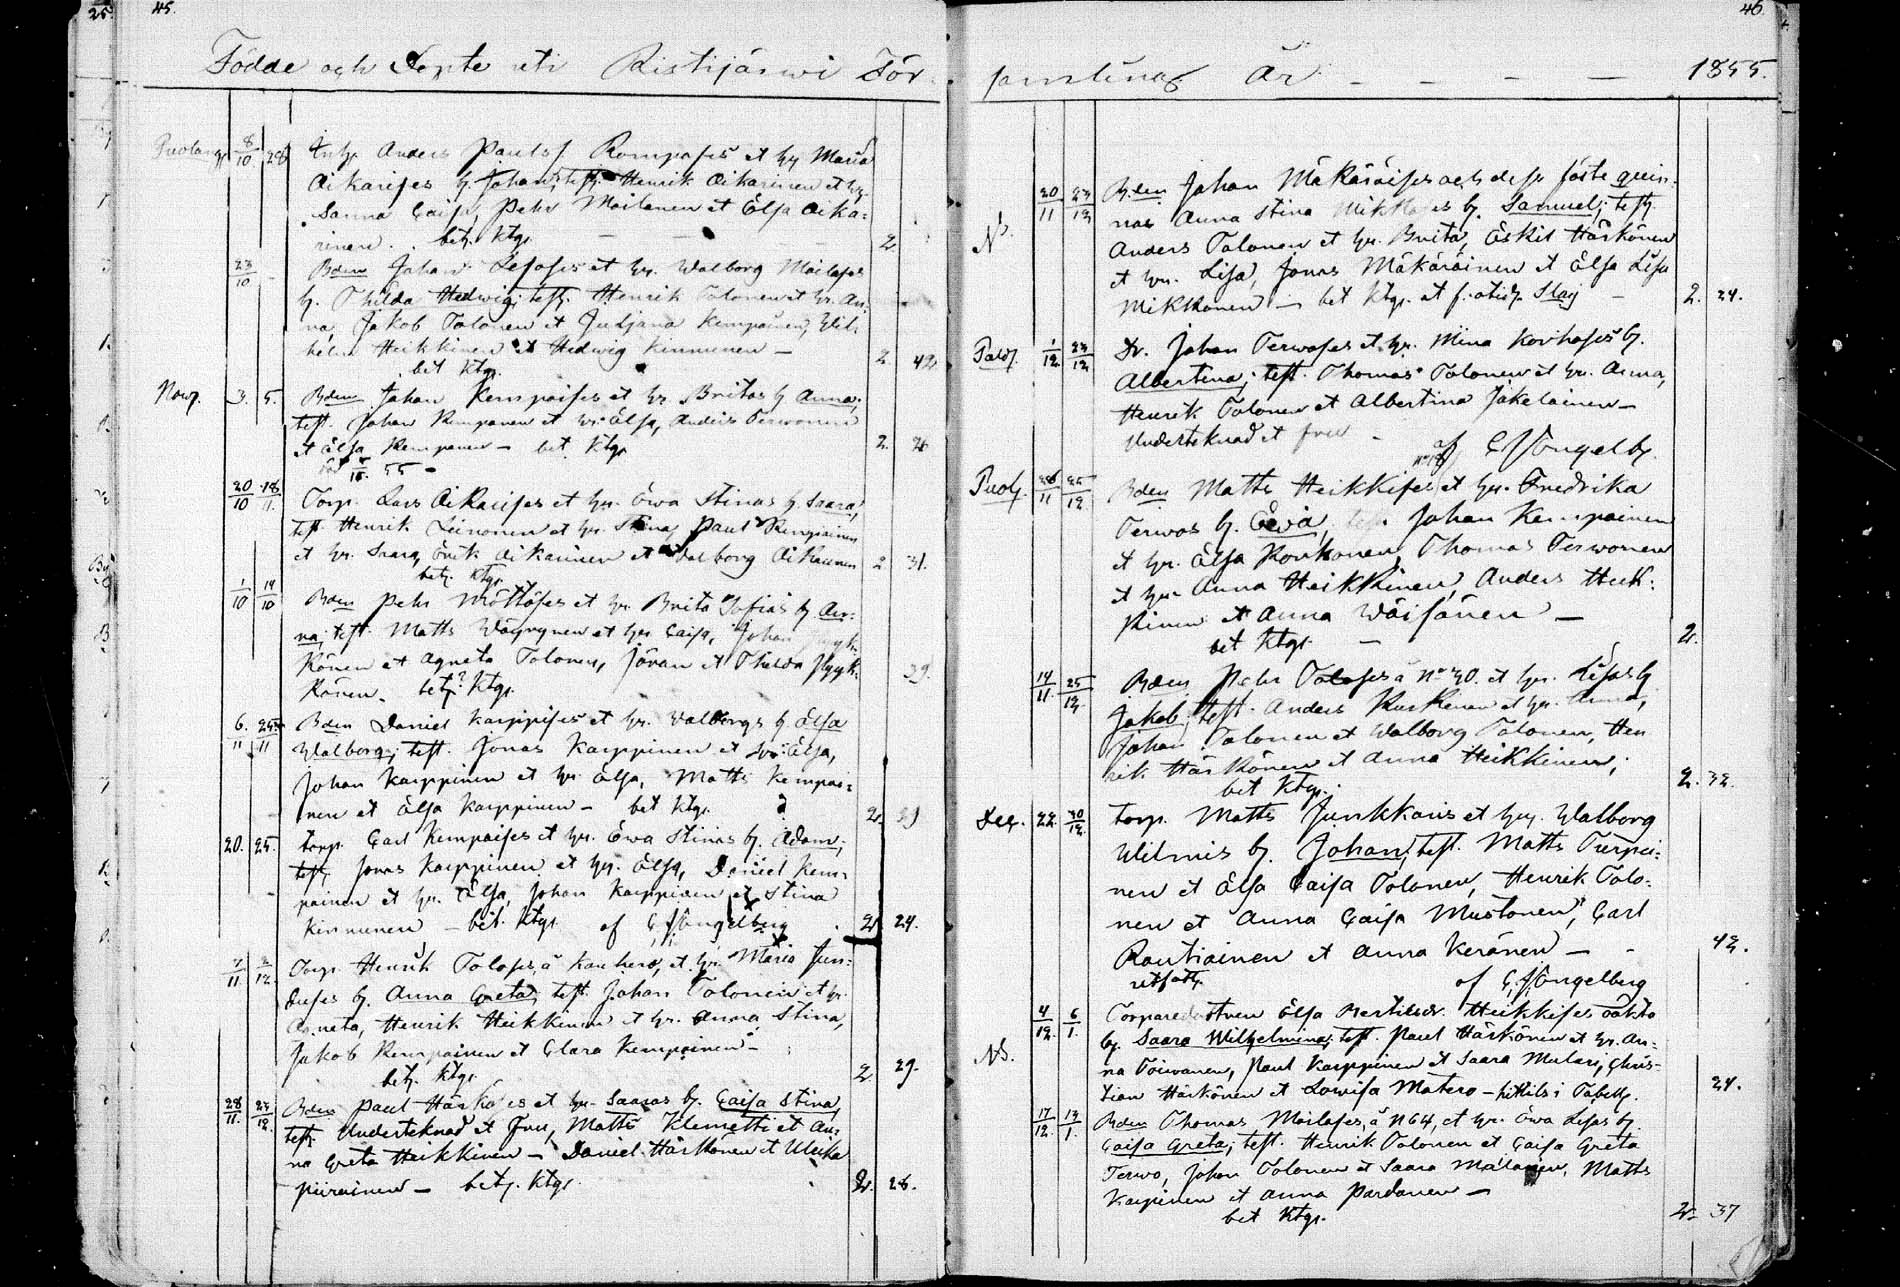 25.
45.
Födde och Döpte uti Ristijärwi För
8/10 28 Anders Paulsf Rompases et hu Maria
Aikarises b. Johan; test. Henrik Aikarinen et hu.
Sanna Caisa, Pehr Moilanen et Elsa Aika=
rinen. bet. Ktgr. 2
23/10 Bden Johan Lesoses et hu. Walborg Moilases
b. Thilda Hedwig; test. Henrik Tolonen et hu. An=
na, Jakob Tolonen et Juljana Kempainen, Wil=
helm Heikkinen et Hedwig Kinnunen —
bet Ktgr. 2 42
Nov. 3. 5. Bden Johan Kempaises et hu Britas b Anna;
test. Johan Kempanen et hu. Elsa, Anders Terwonen
et Elsa Kempanen — bet Ktgr 2. 26
55
20/10 18/11. Torp. Lars Aikarises et hu. Ewa Stinas b. Saara,
test Henrik Leinonen et hu. Stina, Paul Kempainen
et hu. Saara, Erik Aikarinen et Walborg Aikarinen 2 31.
bet. Ktgr.
1/10 14/10 Bden Pehr Möttöses et hu. Brita Sofias b An=
na; test. Matts Wäyrynen et hu Caisa, Johan Pyyk=
könen et Agneta Tolonen, Jöran et Thilda Pyyk=
könen. bet? Ktgr. 39.
6./11 25/11 Bden Daniel Karppises et hu. Walborgs b Elsa
Walborg; test. Jonas Karppinen et hu. Elsa,
Johan Karppinen et hu. Elsa, Matts Kempai=
nen et Elsa Karppinen — bet Ktgr. 2. 29
20. 25. Torp. Carl Kempaises et hu. Ewa Stinas b. Adam;
test. Jonas Karppinen et hu. Elsa, Daniel Kem=
painen et hu. Elsa, Johan Karppinen et Stina
Kinnunen — bet. Ktgr. af C. J. Engelberg 2 24.
7/11 2/12. Torp. Henrik Toloses å Kauhero, et hu. Maria Jun=
duses b. Anna Greta; test. Johan Tolonen et hu
Agneta, Henrik Heikkinen et hu. Anna Stina,
Jakob Kempainen et Clara Kempainen —
bet. Ktgr. 2 29.
28/11. 23/12. Bden Paul Härköses et hu. Saaras b. Caisa Stina,
test. Undertecknad et Fru, Matts Klemetti et An=
na Greta Heikkinen — Daniel Härkönen et Ulrika
Piirainen — bet. Ktgr. 2. 26.
46.
samling År — — — — 1855.
Ns. 20/11 23/12 B.den Johan Mäkäräises och dess fäste quin=
nas Anna Stina b. Samuel; test.
Anders Tolonen et hu. Brita, Eskil Härkönen
et hu. Lisa, Jonas Mäkäräinen et Elsa Lisa
Mikkonen — bet Ktgr. et 2. 24.
1/12 23/12 Dr. Johan Terwases et hu. Mina Korhoses b.
Albertina; test. Thomas Tolonen et hu. Anna,
Henrik Tolonen et Albertina Jäkeläinen —
Undertecknad et fru —
af C J Engelbg.
26/11 25/12 Bden Matts Heikkises et hu. Fredrika
Terwos b. Ewa, Johan Kempainen
et hu. Elsa Korhonen, Thomas Terwonen
et hu. Anna Heikkinen, Anders Heik=
kinen et Anna Wäisänen —
bet Ktgr. — 2.
14/11. 25/12. Bden Pehr Toloses å No 40. et hu. Lisas b.
Jakob; test. Anders Karkinen et hu. Anna,
Johan Tolonen et Walborg Tolonen, Hen
rik Härkönen et Anna Heikkinen;
bet Ktgr. 2. 32.
Dec. 22. 30/12. Torp. Matts Junkkaris et hu. Walborg
Wilmis b. Johan; test. Matts Turpei=
nen et Elsa Caisa Tolonen, Henrik Tolo=
nen et Anna Caisa Mustonen, Carl
Rautiainen et Anna Keränen — 42.
af C. J. Engelberg
4/12. 6/1. Elsa Bertilsdr. Heikkises oäkta
b. Saara Wilhelmina; test. Paul Härkönen et hu. An=
Ns. na Toiwanen, Paul Karppinen et Saara Mulari, Chris=
tian Härkönen et Lowisa Matero — 24.
17/12. 13/1. Bden Thomas Moilases, å N 64, et hu. Ewa Lesas b.
Caisa Greta; test. Henrik Tolonen et Caisa Greta
Terwo, Johan Tolonen et Saara Malanen, Matts
Karpinen et Anna Pardanen —
bet Ktgr. 2 37